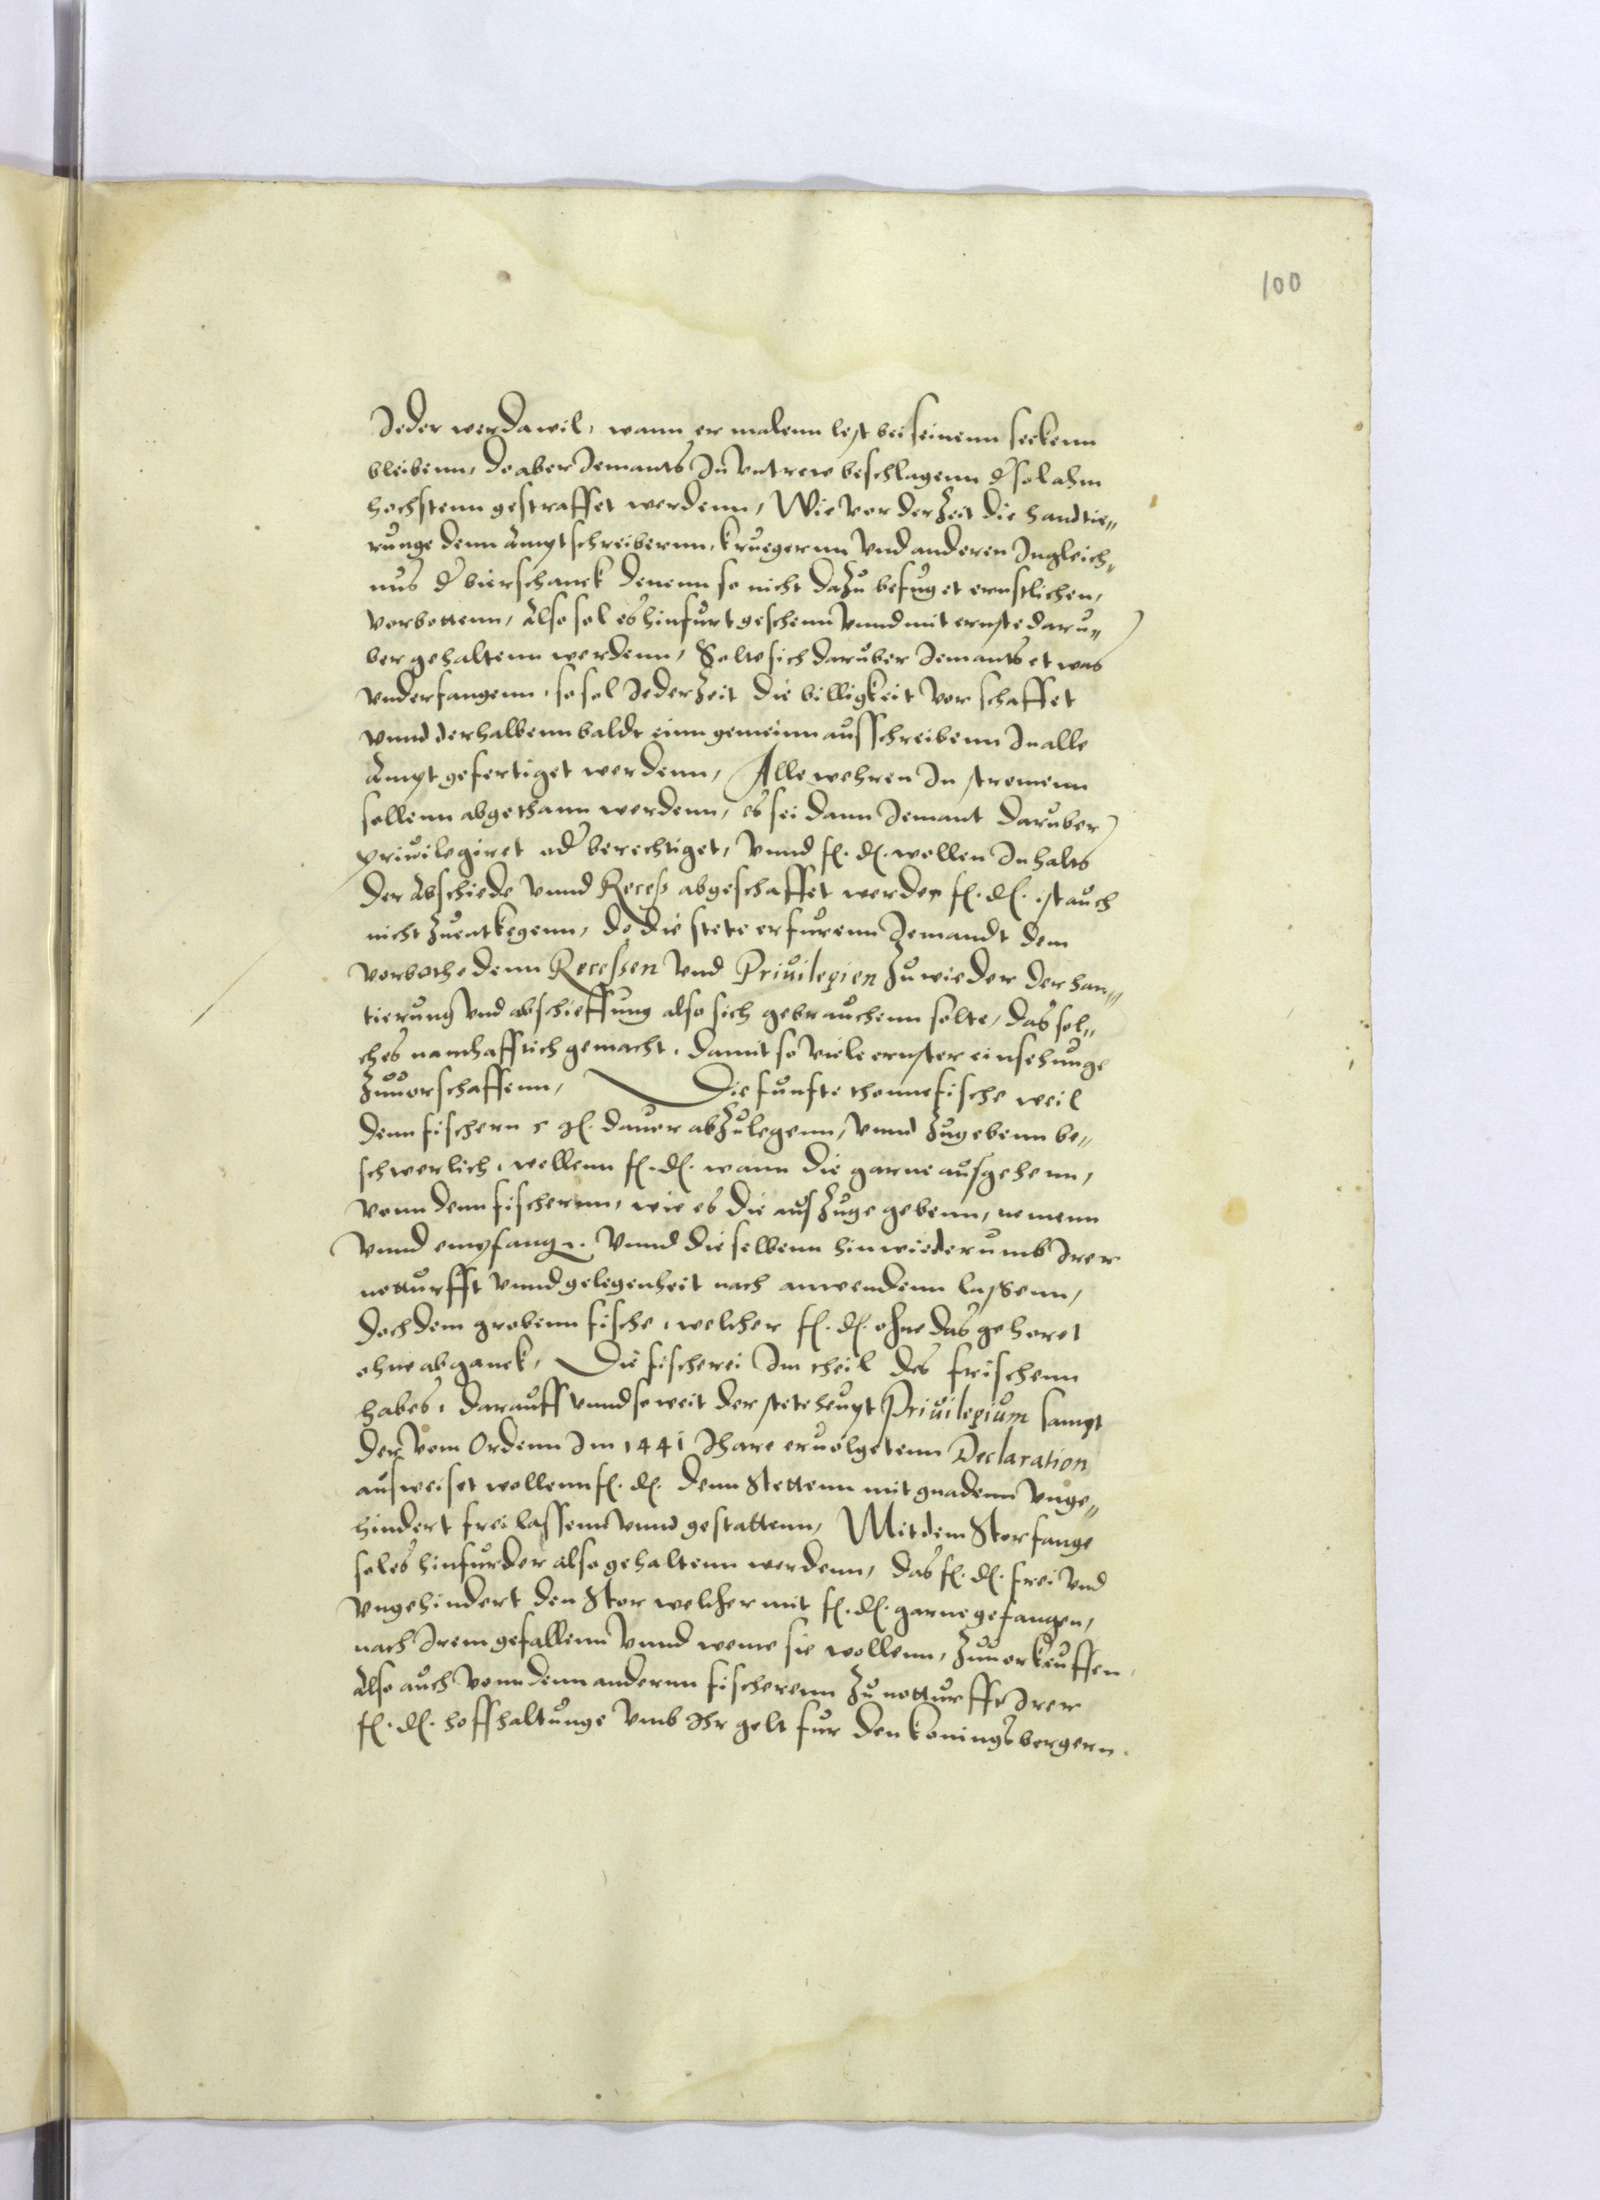 100
Jeder wer da wil, wann er malenn lest bei seinenn seckenn
bleibenn, do aber Jemants In vntrew beschlagenn d' sol ahm
hochstenn gestraffet werdenn, Wie vor der Zeit die handtie„
runge denn Amptschreibernn, kruegernn vnd anderen Ingleich„
nus d' bierschanck denenn so nicht dazu befuget ernstlichen,
vorbottenn, Also sol es hinfurt geschenn vnnd mit ernste daru„
ber gehaltenn werdenn, Solte sich daruber Jemants etwas
vnderfangenn, so sol Jederzeit die billigkeit vorschaffet
vnnd derhalbenn baldt einn gemeinn ausschreibenn In alle
Ampt gefertiget werdenn, Alle wehren In stremenn
sollenn abgethann werdenn, es sei dann Jemant daruber
priuilegiret od' berechtiget, vnnd f. d. wollen Inhalts
der Abschiede vnnd Recess abgeschaffet werden f. d. ist auch
nicht zuentkegenn, do die stete erfurenn Jemandt dem
vorbothe denn Recessen vnd Priuilegien zuwieder der han„
tierung vnd abschieffung also sich gebrauchenn solte, das sol„
ches namhafftich gemacht, damit so viele ernster einsehunge
zuuorschaffenn, Die funfte thonnefische weil
denn fischern 5 d. dauor abzulegenn, vnnd zugebenn be„
schwerlich, wollenn f. d. wann die garne ausgehenn,
vonn denn fischernn, wie es die auszuge gebenn, nemenn
vnnd empfang. vnnd dieselbenn hinwiederumb Irer
notturfft vnnd gelegenheit nach anwendenn lassenn,
doch dem grobenn fische, welcher f. d. ohne das gehoret
ohne abganck, Die fischerei Im theil des frischenn
habes, darauff vnnd so weit der stete heupt Priuilegium sampt
der vom Ordenn Im 1441 Jhare eruolgetenn Declaration
ausweiset wollenn f. d. denn Stettenn mit gnadenn vnge„
hindert frei lassenn vnnd gestattenn, Mit dem Storfange
sol es hinfurder also gehaltenn werdenn, das f. d. frei vnd
vngehindert den Stor welcher mit f. d. garne gefangen,
nach Irem gefallenn vnnd weme sie wollenn, zuuorkeuffen,
Also auch vonn denn andernn fischerenn zu notturfft Irer
f. d. hoffhaltunge vmb Ihr gelt fur den konigsbergern.